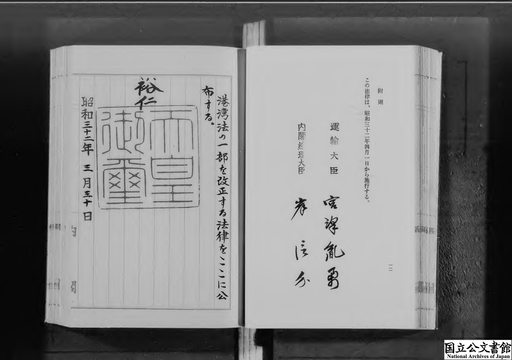 附則
この法律は、昭和三十二年四月一日から施行する。
運輸大臣 宮澤胤勇
内閣総理大臣 岸信介
二
港湾法の一部を改正する法律をここに公
布する。
裕仁
天皇
御璽
昭和三十二年三月三十日
国立公文書館
National Archives of Japan